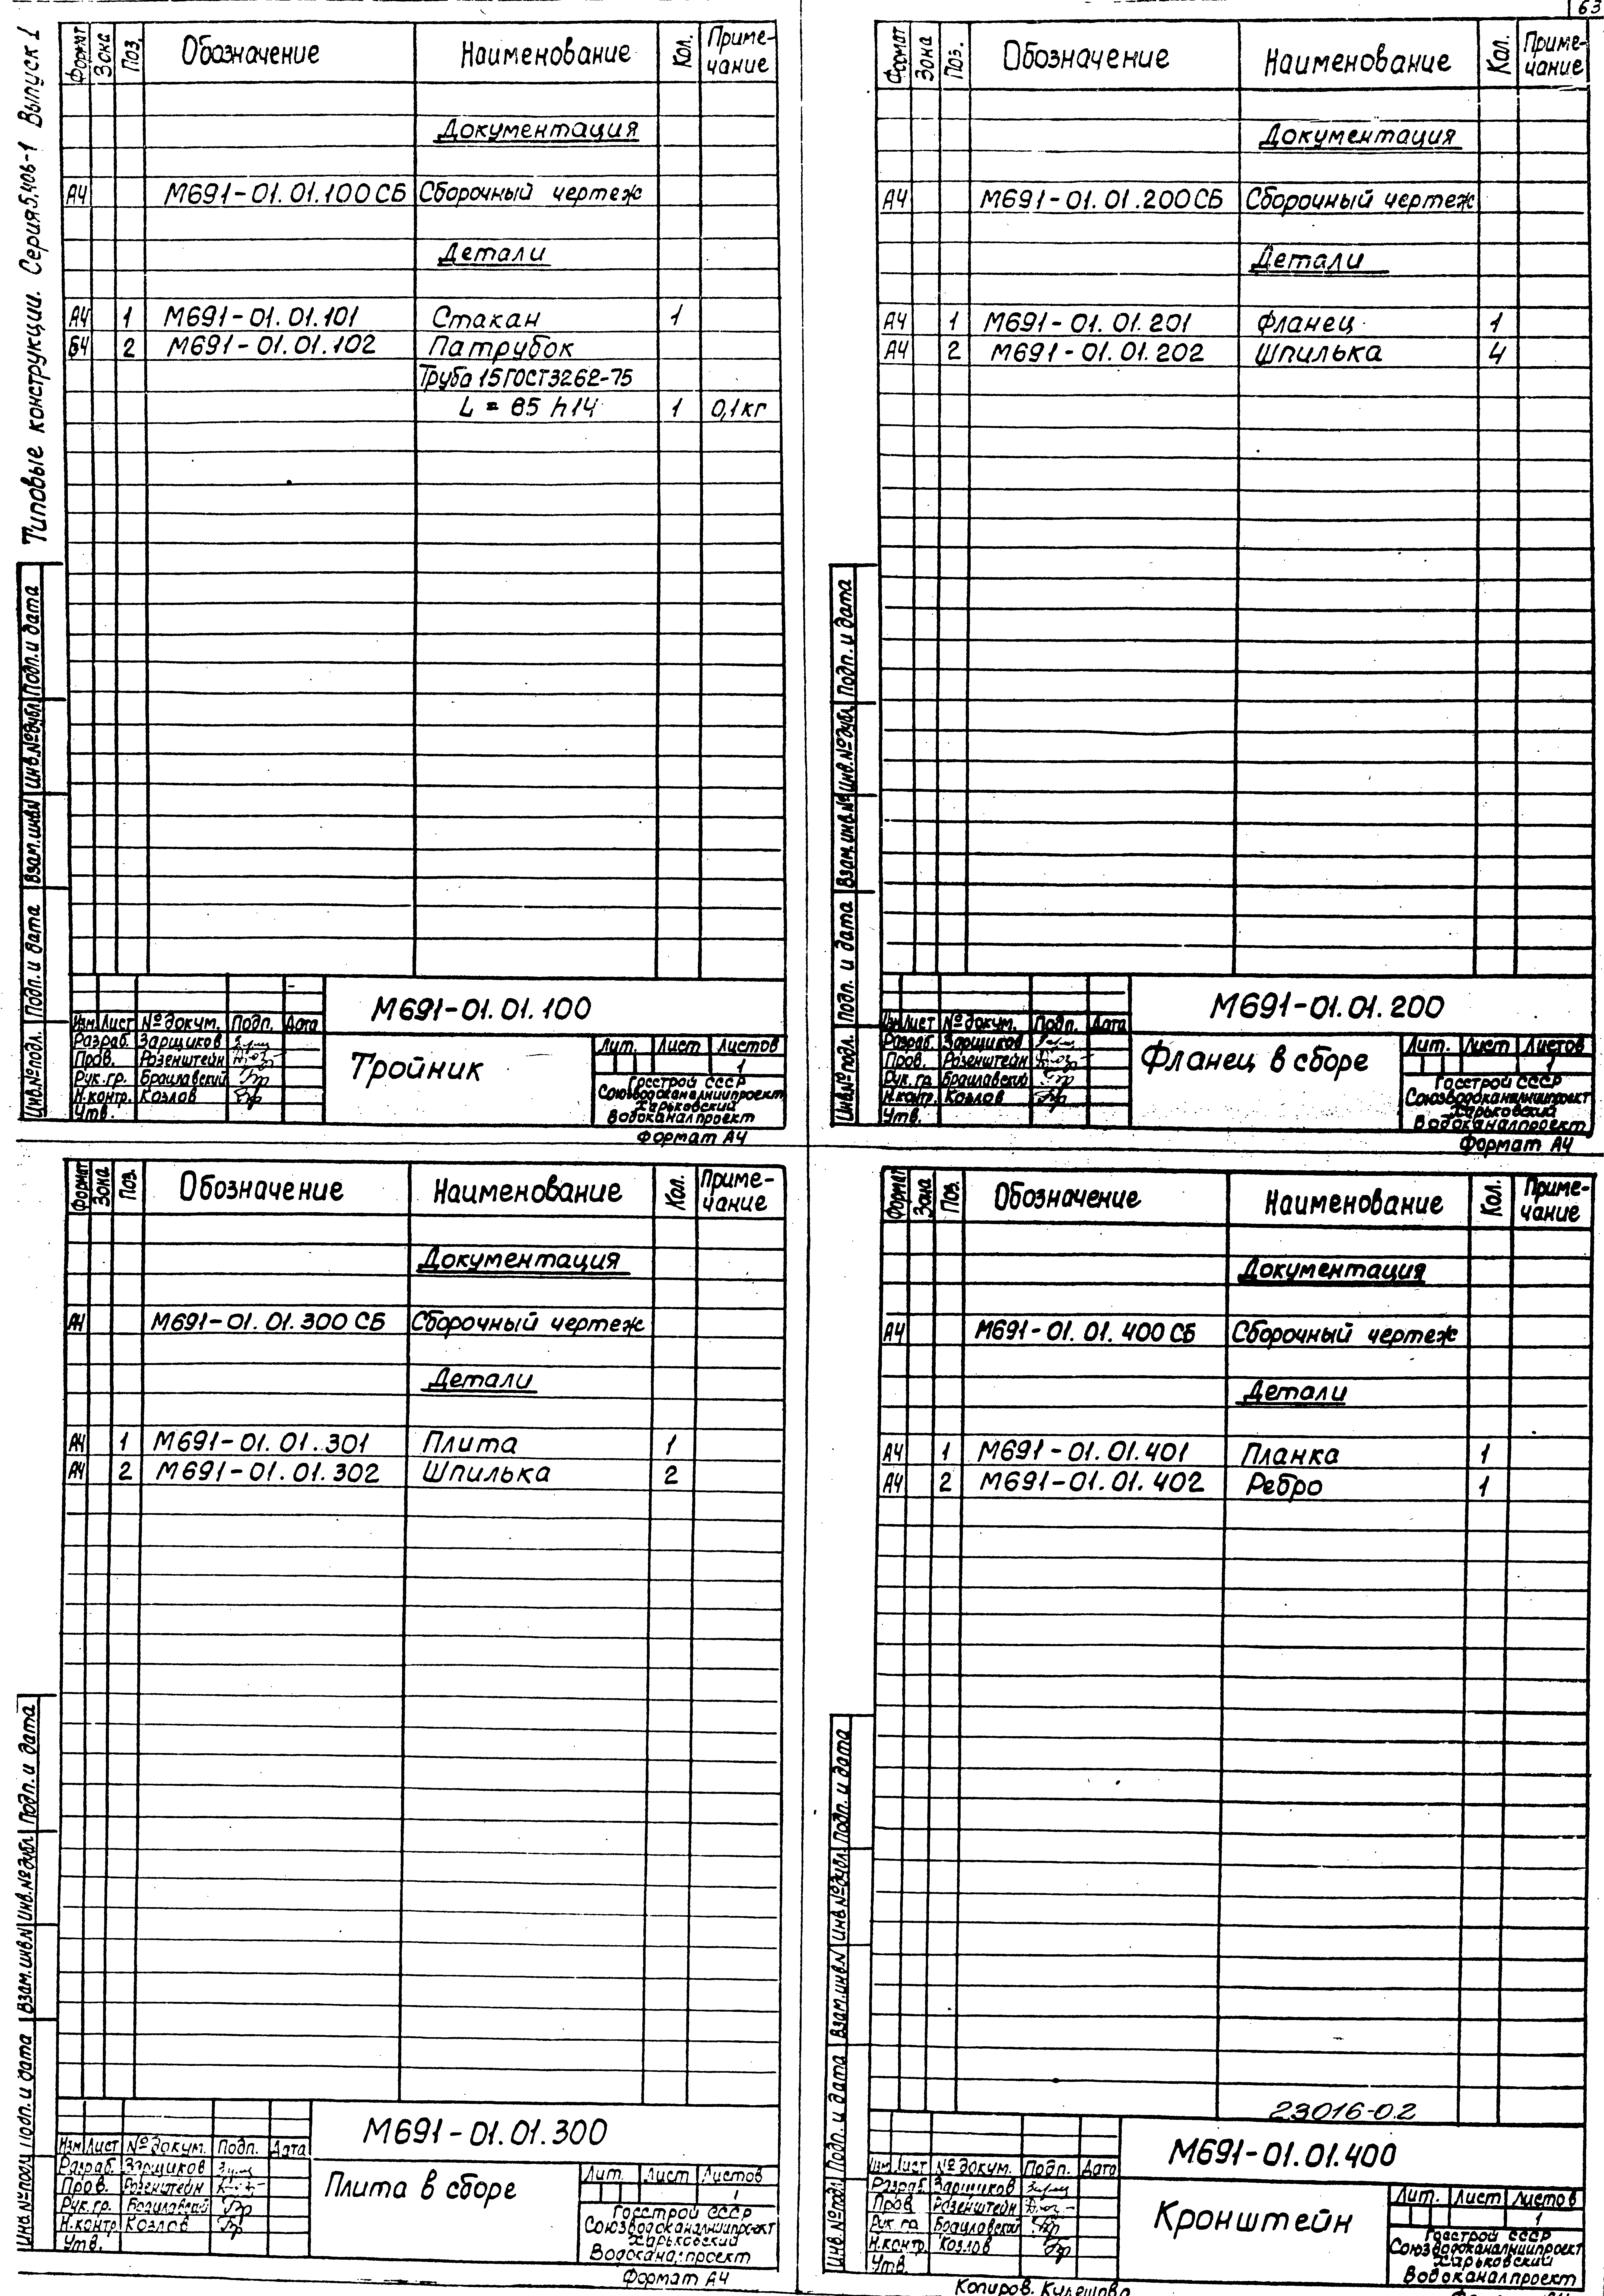 63
Типовые конструкции. Серия 5.406-1 Выпуск 1
Формат Зона Поз. Обозначение Наименование Кол. Приме-чание
Документация
А4 М691-01.01.100СБ Сборочный чертеж
Детали
А4 1 М691-01.01.101 Стакан 1
Б4 2 М691-01.01.102 Патрубок
Труба 15 ГОСТ3262-75
L = 65 h14 1 0,1кг
Инв.№подл. Подп. и дата Взам.инв.N Инв.№дубл. Подп. и дата
М691-01.01.100
Изм. Лист №докум. Подп. Дата
Разраб. Зарщиков
Пров. Розенштейн
Рук.гр. Браилавский
Н.контр. Козлов
Утв.
Тройник
Лит. Лист Листов
1
Госстрой СССР
Союзводоканалниипроект
Харьковский
Водоканалпроект
Формат А4
Формат Зона Поз. Обозначение Наименование Кол. Приме-чание
Документация
А4 М691-01.01.200СБ Сборочный чертеж
Детали
А4 1 М691-01.01.201 Фланец 1
А4 2 М691-01.01.202 Шпилька 4
Инв.№подл. Подп. и дата Взам.инв.№ Инв.№дубл. Подп. и дата
М691-01.01.200
Изм. Лист №докум. Подп. Дата
Разраб. Зарщиков
Пров. Розенштейн
Рук.гр. Браилавский
Н.контр. Козлов
Утв.
Фланец в сборе
Лит. Лист Листов
1
Госстрой СССР
Союзводоканалниипроект
Харьковский
Водоканалпроект
Формат А4
Формат Зона Поз. Обозначение Наименование Кол. Приме-чание
Документация
А4 М691-01.01.300 СБ Сборочный чертеж
Детали
А4 1 М691-01.01.301 Плита 1
А4 2 М691-01.01.302 Шпилька 2
Инв.№подл. Подп. и дата Взам.инв.N Инв.№дубл. Подп. и дата
М691-01.01.300
Изм Лист №докум. Подп. Дата
Разраб. Зарщиков
Пров. Розенштейн
Рук.гр. Браилавский
Н.контр. Козлов
Утв.
Плита в сборе
Лит. Лист Листов
1
Госстрой СССР
Союзводоканалниипроект
Харьковский
Водоканалпроект
Формат А4
Формат Зона Поз. Обозначение Наименование Кол. Приме-чание
Документация
А4 М691-01.01.400 СБ Сборочный чертеж
Детали
А4 1 М691-01.01.401 Планка 1
А4 2 М691-01.01.402 Ребро 1
Инв.№подл. Подп. и дата Взам.инв.N Инв.№дубл. Подп. и дата
23016-02
М691-01.01.400
Изм Лист №докум. Подп. Дата
Разраб. Зарщиков
Пров. Розенштейн
Рук.гр. Браилавский
Н.контр. Козлов
Утв.
Кронштейн
Лит. Лист Листов
1
Госстрой СССР
Союзводоканалниипроект
Харьковский
Водоканалпроект
Копиров. Кулешова